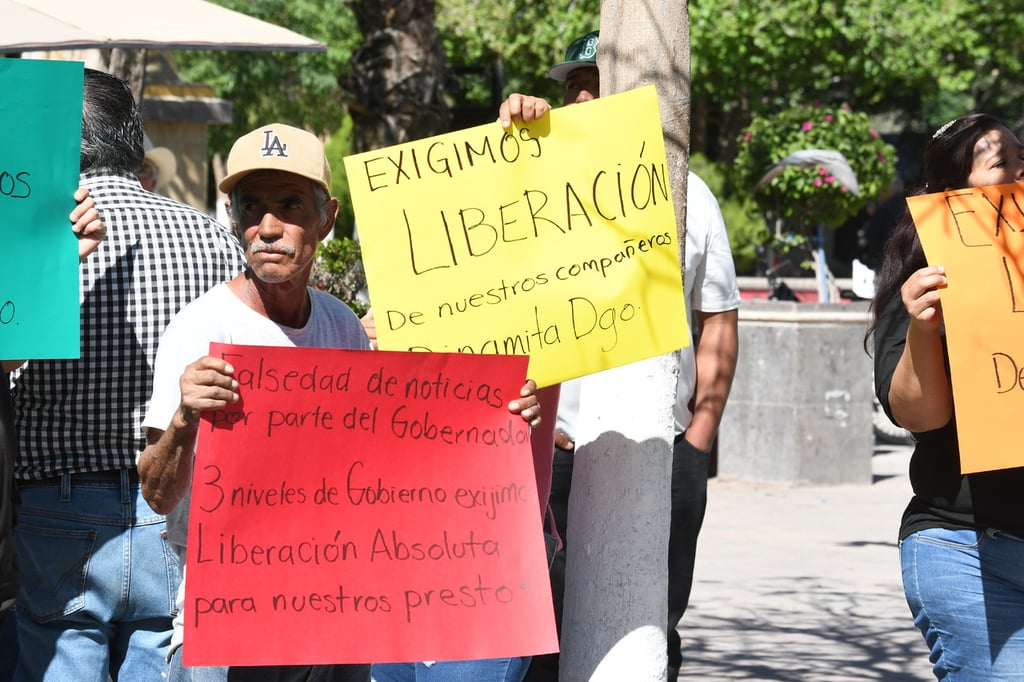 LA
B
EXIGIMOS
LIBERACIÓN
De nuestros compañeros
Dinamita Dgo.
Falsedad de noticias
por parte del Gobernador
3 niveles de Gobierno exijimo
Liberación Absoluta
para nuestros prestos
os
o.
EXI
L
De